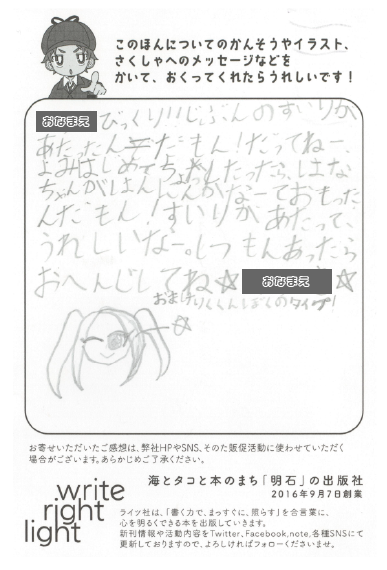 このほんについてのかんそうやイラスト、
さくしゃへのメッセージなどを
かいて、おくってくれたらうれしいです！
おなまえ びっくり!!じぶんのすいりが
あたったんだもん！だってねー、
よみはじめてちょっとしたったら、はな
ちゃんがはんにんかなーておもった
んだもん！すいりがあたって、
うれしいなー。しつもんあったら
おへんじしてね☆ おなまえ ☆
おまけ りくくんぼくのタイプ！
お寄せいただいたご感想は、弊社HPやSNS、そのた販促活動に使わせていただく
場合がございます。あらかじめご了承ください。
海とタコと本のまち「明石」の出版社
2016年9月7日創業
write
right
light
ライツ社は、「書く力で、まっすぐに、照らす」を合言葉に、
心を明るくできる本を出版していきます。
新刊情報や活動内容をTwitter、Facebook、note、各種SNSにて
更新しておりますので、よろしければフォローくださいませ。